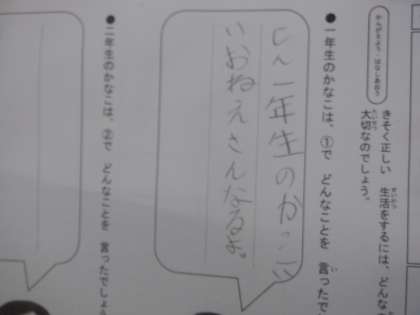 きそく正しい 生活をするには、どんな
大切なのでしょう。
かんがえよう・はなしあおう
●一年生のかなこは、①で どんなことを 言った
しん一年生のかっこい
いおねえさんなるよ。
●二年生のかなこは、②で どんなことを 言ったでしょ